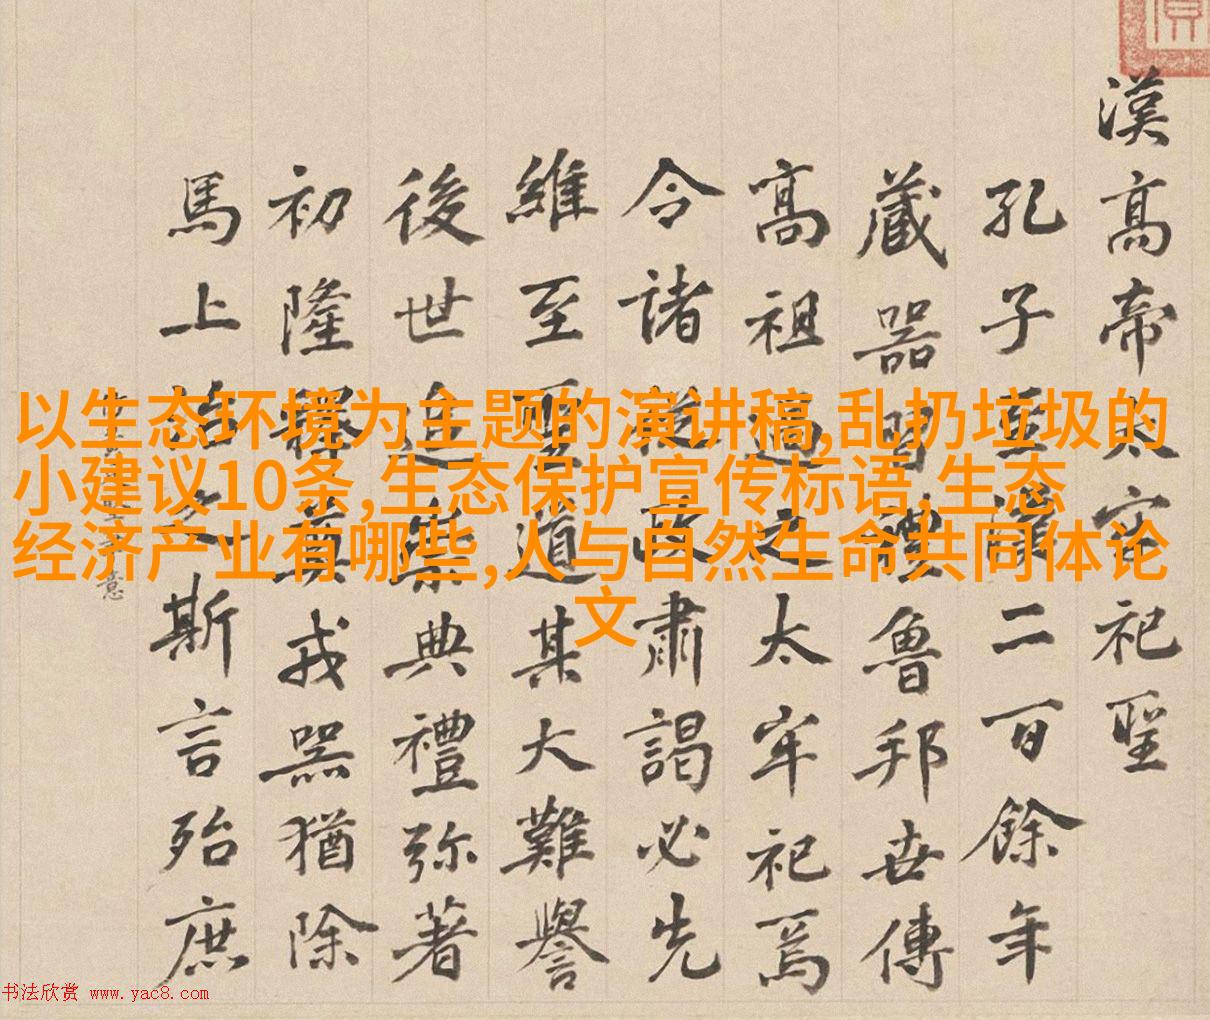 漢高帝太牢祀聖
孔子至漢二百餘年
藏器習禮魯邦世傳
高祖過之太牢祀焉
令諸從政肅謁必先
維至聖道其大難譽
後世追崇典禮弥著
初隆釋奠戎器猶除
馬上治之斯言殆庶
意
以生态环境为主题的演讲稿,乱扔垃圾的
小建议10条,生态保护宣传标语,生态
经济产业有哪些,人与自然生命共同体论
文
书法欣赏 www.yac8.com